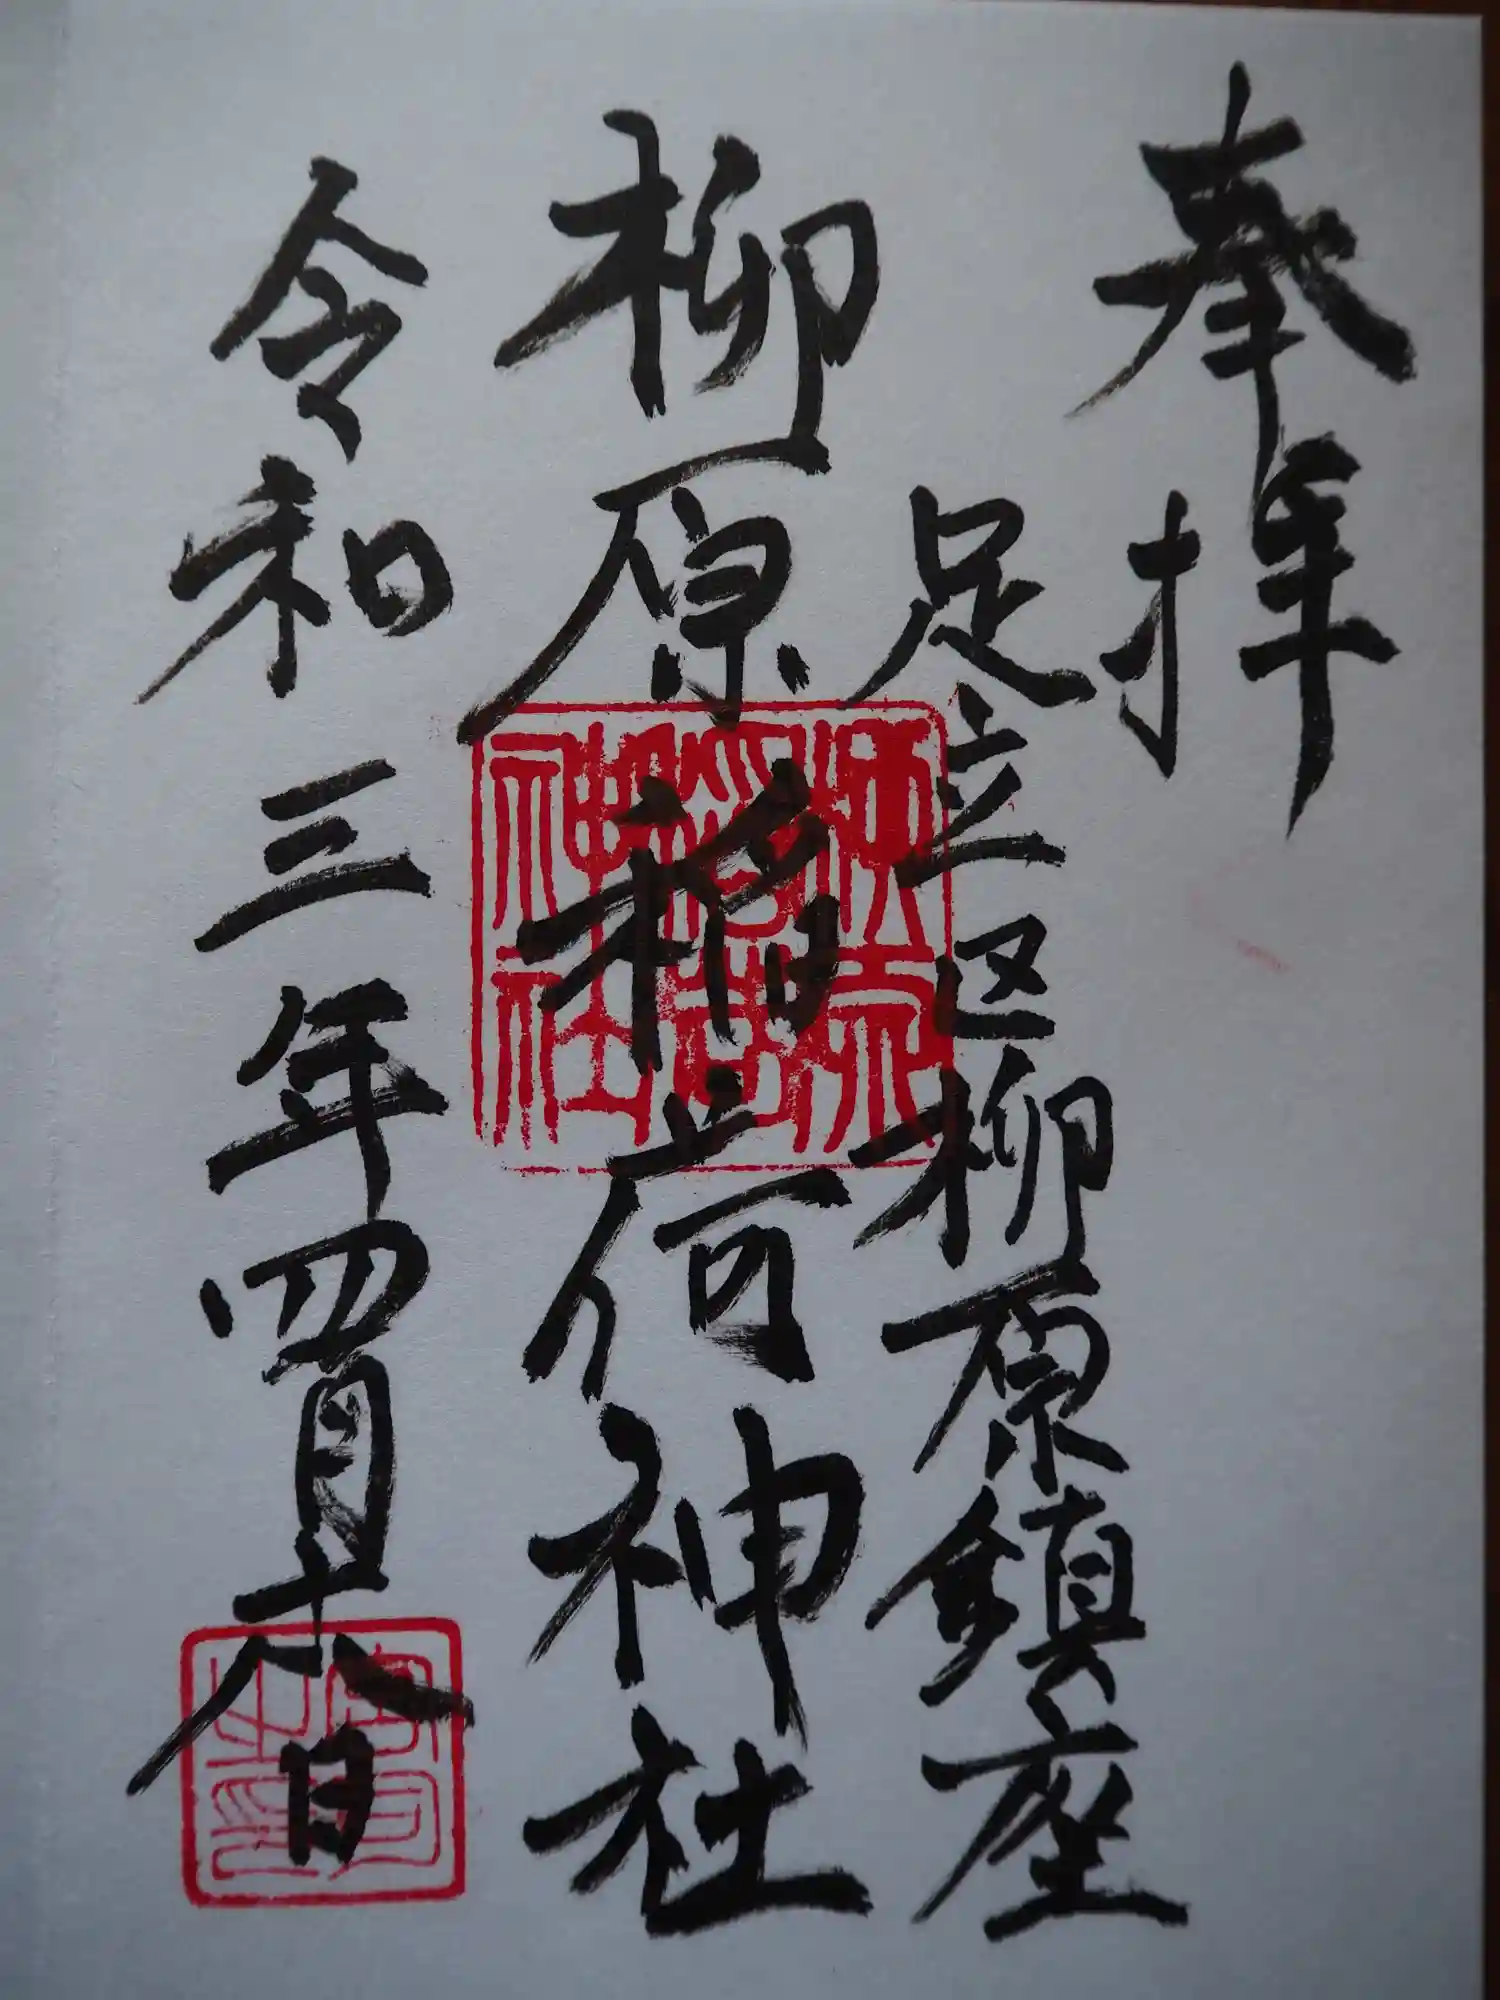 奉拝
足立区柳原鎮座
柳原稲荷神社
令和三年四月十八日
稲荷
神社